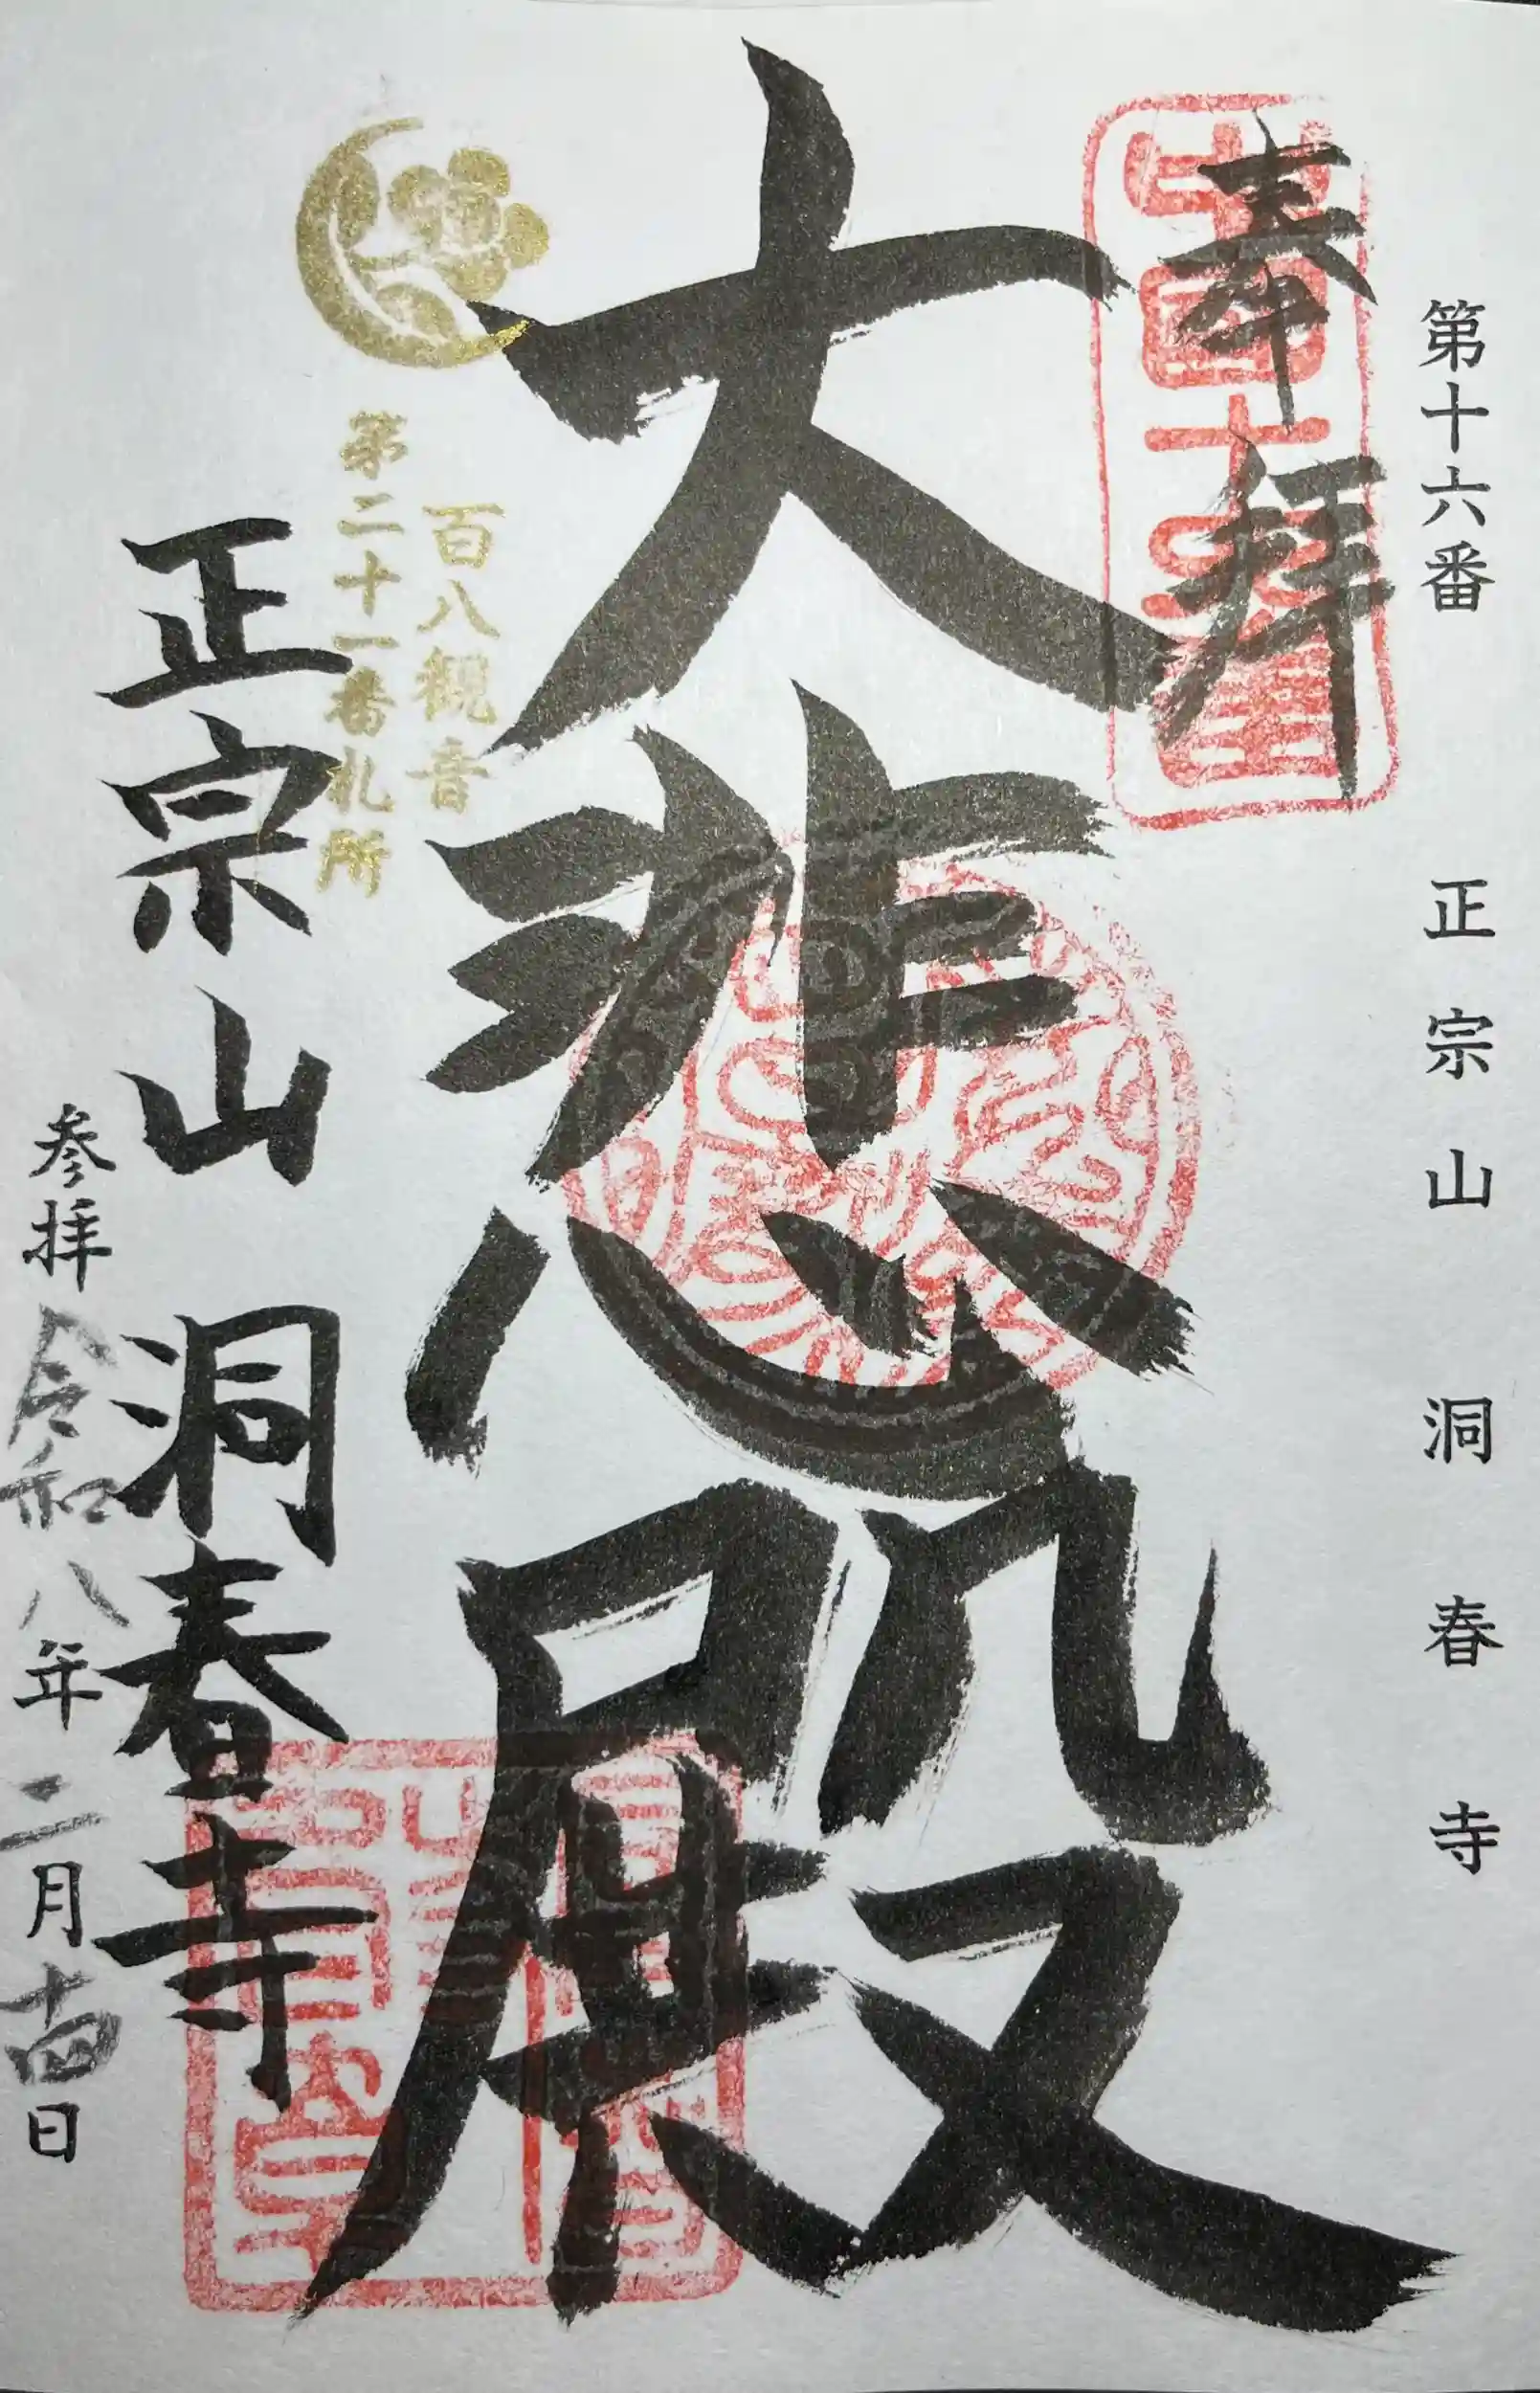 第十六番 正宗山 洞春寺
奉拝
大悲殿
百八観音
第二十一番札所
正宗山 洞春寺
参拝 令和八年二月十四日